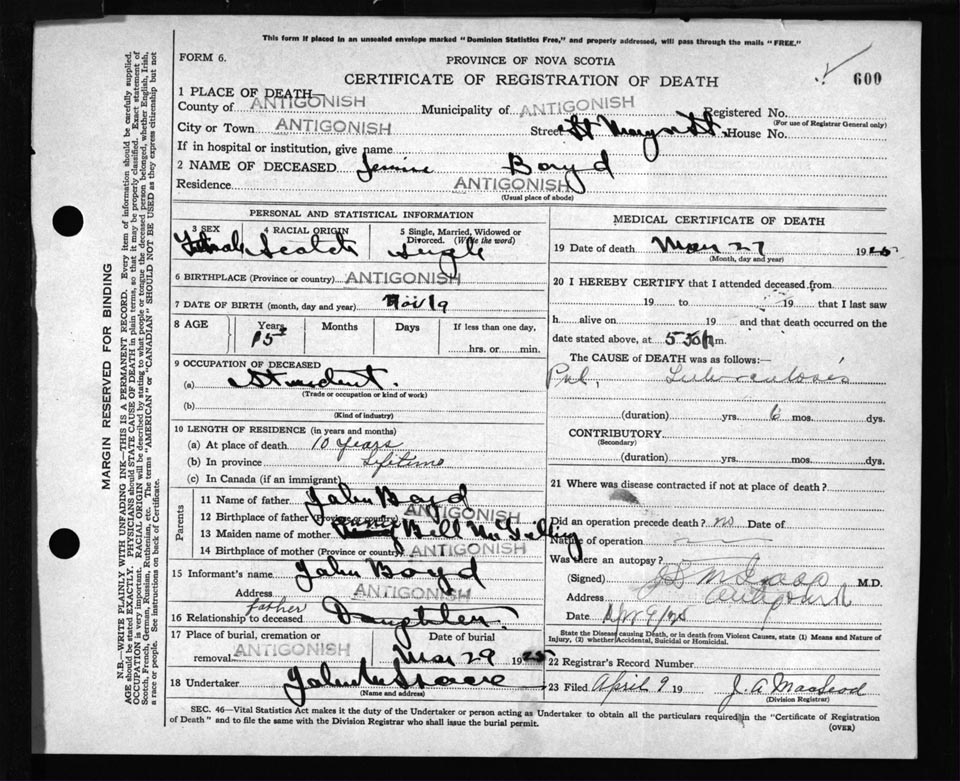 This form if placed in an unsealed envelope marked "Dominion Statistics Free," and properly addressed, will pass through the mails "FREE."
FORM 6.
PROVINCE OF NOVA SCOTIA
CERTIFICATE OF REGISTRATION OF DEATH
600
1 PLACE OF DEATH—
County of ANTIGONISH Municipality of ANTIGONISH Registered No.
(For use of Registrar General only)
City or Town ANTIGONISH Street St House No.
If in hospital or institution, give name
2 NAME OF DECEASED Boyd
Residence ANTIGONISH
(Usual place of abode)
PERSONAL AND STATISTICAL INFORMATION
3 SEX 4 RACIAL ORIGIN 5 Single, Married, Widowed or Divorced. (Write the word)
Female Scotch Single
6 BIRTHPLACE (Province or country) ANTIGONISH
7 DATE OF BIRTH (month, day and year) Nov 19
8 AGE Years Months Days If less than one day,
15 hrs. or min.
9 OCCUPATION OF DECEASED
(a) Student.
(Trade or occupation or kind of work)
(b)
(Kind of industry)
10 LENGTH OF RESIDENCE (in years and months)
(a) At place of death 10 years
(b) In province Lifetime
(c) In Canada (if an immigrant)
Parents
11 Name of father John Boyd
12 Birthplace of father (Province or country) ANTIGONISH
13 Maiden name of mother Bell
14 Birthplace of mother (Province or country) ANTIGONISH
15 Informant's name John Boyd
Address ANTIGONISH
16 Relationship to deceased father Daughter.
17 Place of burial, cremation or removal ANTIGONISH Date of burial Mar 29 1925
18 Undertaker John
(Name and address)
MEDICAL CERTIFICATE OF DEATH
19 Date of death Mar 27 1925
(Month, day and year)
20 I HEREBY CERTIFY that I attended deceased from
19 to 19 that I last saw
h alive on 19 and that death occurred on
date stated above, at m.
The CAUSE of DEATH was as follows:—
Pul. Tuberculosis
(duration) yrs. 6 mos. dys.
CONTRIBUTORY
(Secondary)
(duration) yrs. mos. dys.
21 Where was disease contracted if not at place of death?
Did an operation precede death? no Date of
Nature of operation
Was there an autopsy?
(Signed) M.D.
Address Antigonish
Date Apr 9/25
State the Disease causing Death, or in death from Violent Causes, state (1) Means and Nature of Injury, (2) whether Accidental, Suicidal or Homicidal.
22 Registrar's Record Number
23 Filed April 9 19 J. A MacLeod
(Division Registrar)
SEC. 46—Vital Statistics Act makes it the duty of the Undertaker or person acting as Undertaker to obtain all the particulars required in the "Certificate of Registration
of Death" and to file the same with the Division Registrar who shall issue the burial permit.
(OVER)
MARGIN RESERVED FOR BINDING
N.B.—WRITE PLAINLY WITH UNFADING INK—THIS IS A PERMANENT RECORD. Every item of information should be carefully supplied.
AGE should be stated EXACTLY. PHYSICIANS should STATE CAUSE OF DEATH in plain terms, so that it may be properly classified. Exact statement of
OCCUPATION is very important. RACIAL ORIGIN will be described by stating to what people or tongue the deceased person belonged, whether English, Irish,
Scotch, French, German, Russian, Ruthenian, etc. The terms "AMERICAN" or "CANADIAN" SHOULD NOT BE USED as they express citizenship but not
a race or people. See instructions on back of Certificate.